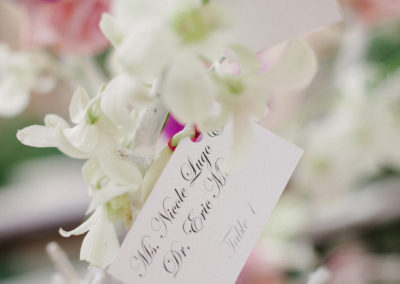 Ms. Nicole Lugo
Dr. Eric M
Table 1